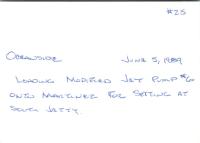 #25
OCEANSIDE JUNE 5, 1989
LOADING MODIFIED JET PUMP #6
ONTO MARTINEZ FOR SETTING AT
SOUTH JETTY.